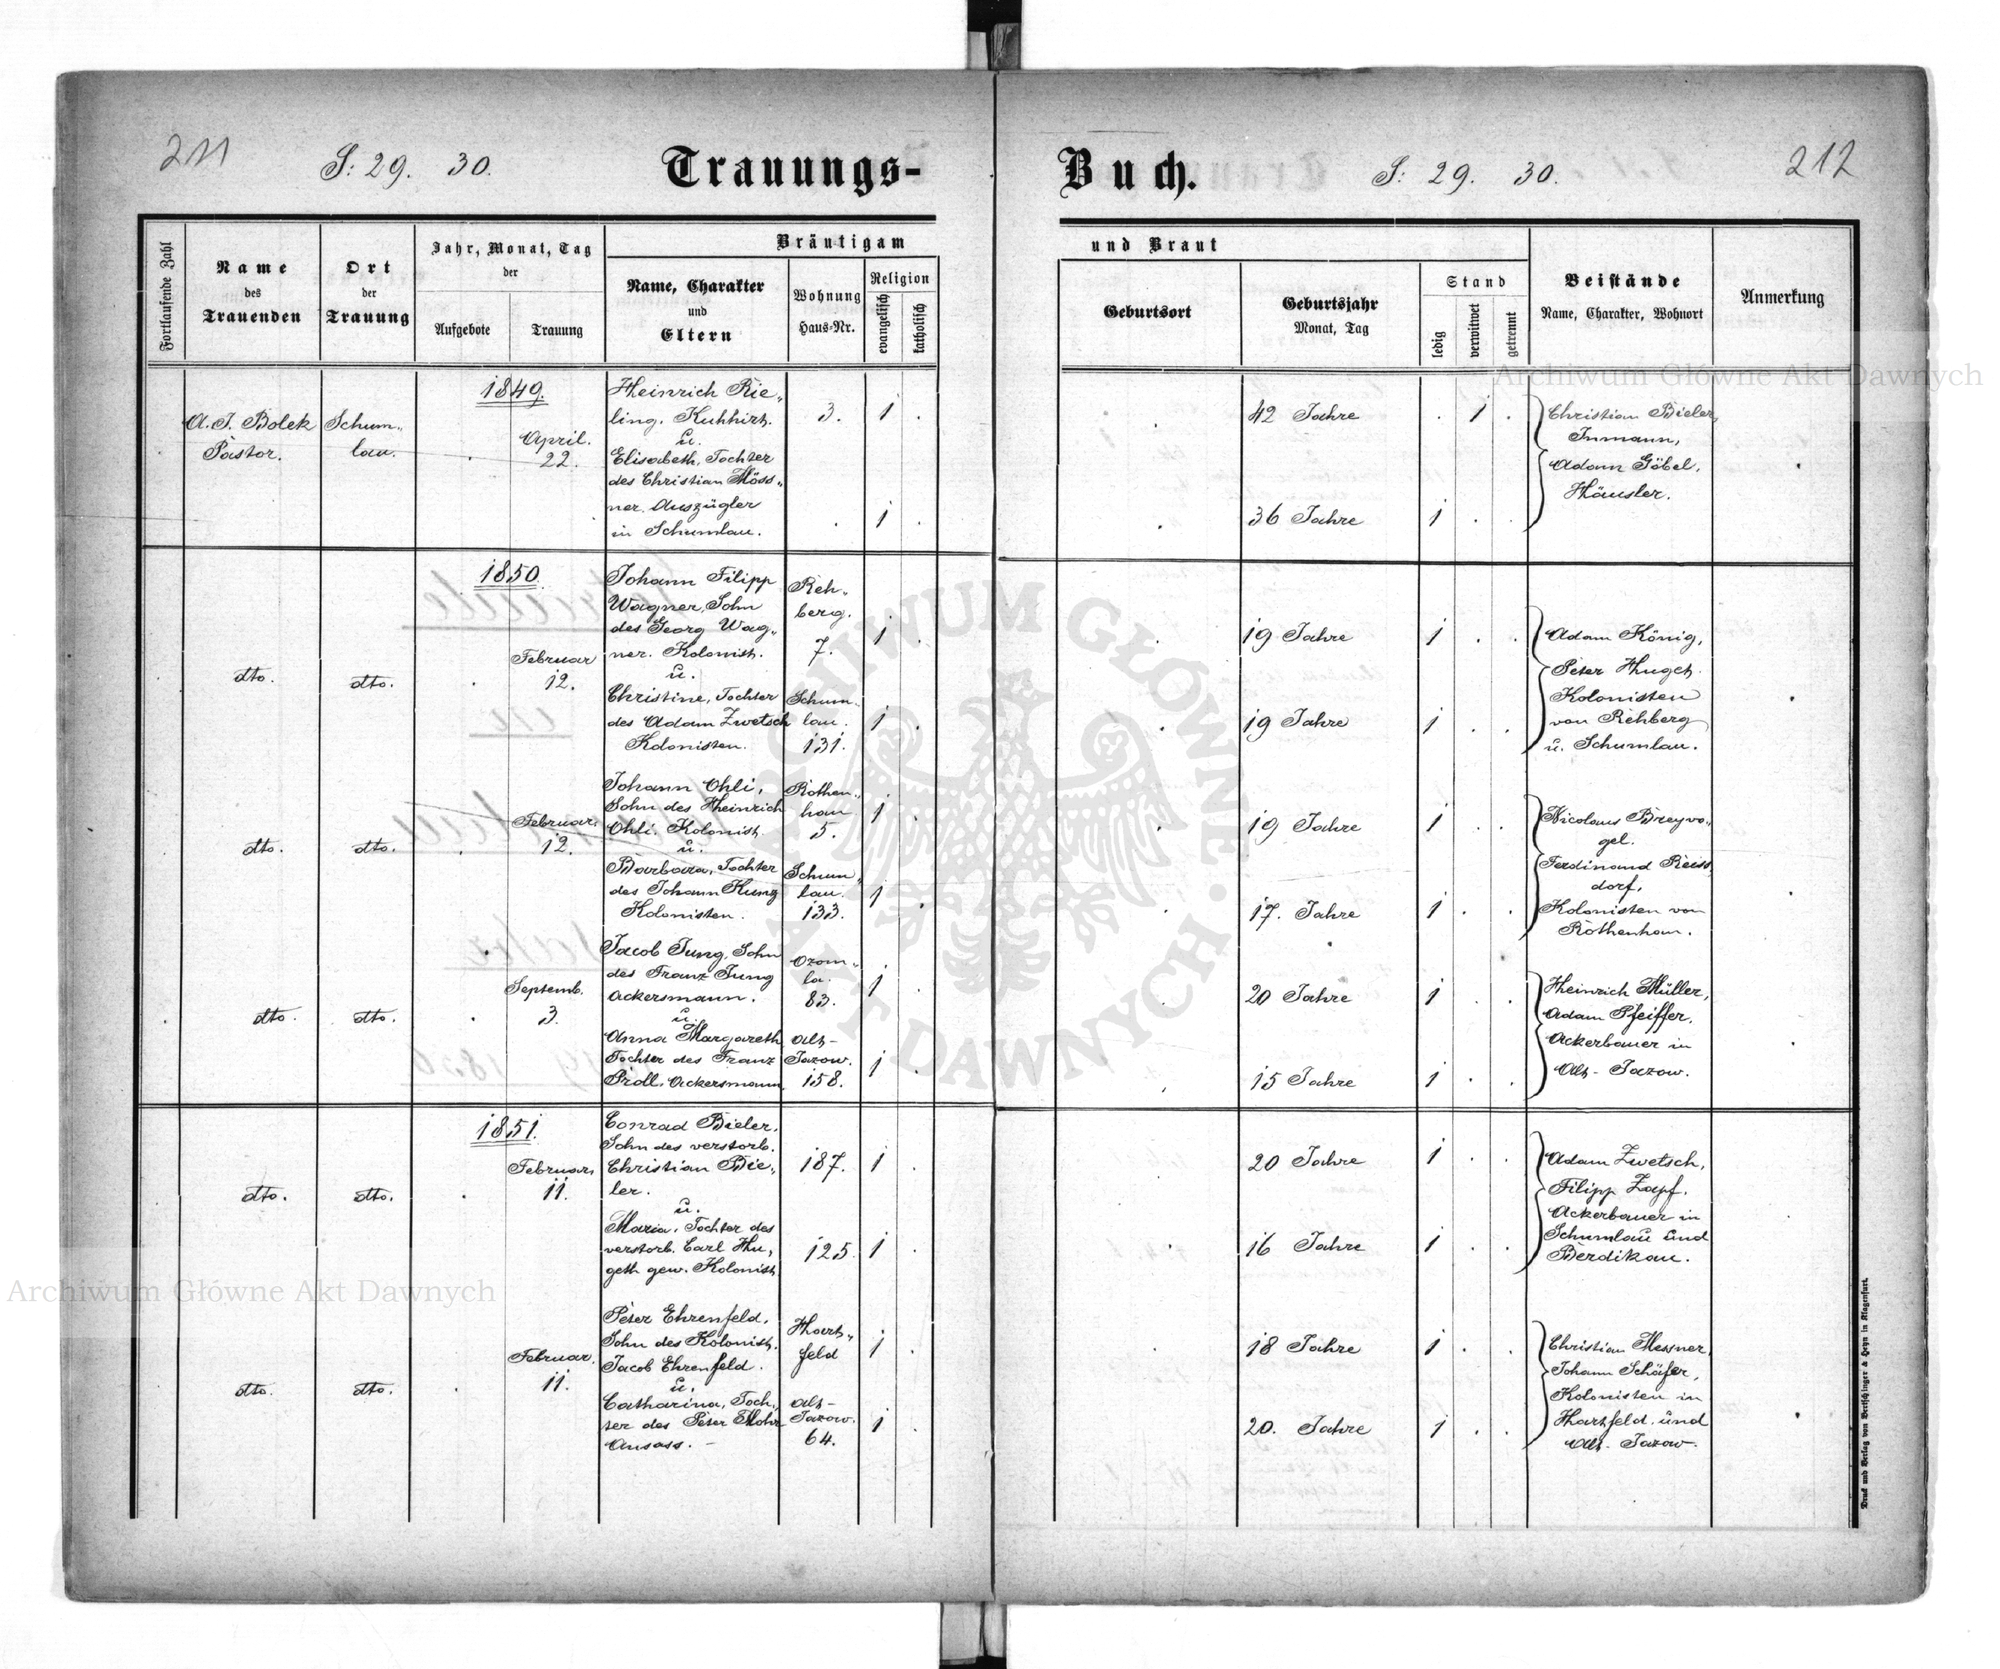 211
S: 29. 30.
Trauungs-
Buch.
S: 29. 30.
212
Fortlaufende Zahl
Name
des
Trauenden
Ort
der
Trauung
Jahr, Monat, Tag
der
Aufgebote
Trauung
Bräutigam
Name, Charakter
und
Eltern
Wohnung
Haus-Nr.
Religion
evangelisch
katholisch
und Braut
Geburtsort
Geburtsjahr
Monat, Tag
Stand
ledig
verwitwet
getrennt
Beistände
Name, Charakter, Wohnort
Anmerkung
A. J. Bolek
Pastor.
Schum„
lau.
1849.
April.
22.
Heinrich Rie„
ling, Kuhhirt.
u.
Elisabeth, Tochter
des Christian Möss„
ner. Auszügler
in Schumlau.
3.
1
1
42 Jahre
1
36 Jahre
1
Christian Bieler,
Inmann,
Adam Göbel,
Häusler.
dto.
dto.
1850.
Februar
12.
Johann Filipp
Wagner, Sohn
des Georg Wag„
ner. Kolonist.
u.
Christine, Tochter
des Adam Zwetsch
Kolonisten.
Reh„
berg.
7.
Schum„
lau.
131.
1
1
19 Jahre
1
19 Jahre
1
Adam König,
Peter Huget.
Kolonisten
von Rehberg
u. Schumlau.
dto.
dto.
Februar.
12.
Johann Ohli,
Sohn des Heinrich
Ohli. Kolonist.
u.
Barbara, Tochter
des Johann Kunz
Kolonisten.
Rothen„
han
5.
Schum„
lau.
133.
1
1
19 Jahre
1
17. Jahre
1
Nicolaus Breyvo„
gel.
Ferdinand Reiss„
dorf,
Kolonisten von
Rothenhan.
dto.
dto.
Septemb.
3.
Jacob Jung, Sohn
des Franz Jung
Ackersmann.
u.
Anna Margareth
Tochter des Franz
Prdl. Ackersmann
Ozom„
la.
83.
Alt-
Jazow.
158.
1
1
20 Jahre
1
15 Jahre
1
Heinrich Müller,
Adam Pfeiffer,
Ackerbauer in
Alt- Jazow.
dto.
dto.
1851.
Februar,
11.
Conrad Bieler,
Sohn des verstorb.
Christian Bie„
ler.
u.
Maria, Tochter des
verstorb. Carl Hu„
geth gew. Kolonist.
187.
125.
1
1
20 Jahre
1
16 Jahre
1
Adam Zwetsch,
Filipp Zapf.
Ackerbauer in
Schumlau und
Berdikau.
dto.
dto.
Februar.
11.
Peter Ehrenfeld,
Sohn des Kolonist.
Jacob Ehrenfeld.
u.
Catharina, Toch„
ter des Peter Mohr
Ansass. -
Hart„
feld
Alt-
Jazow.
64.
1
1
18 Jahre
1
20. Jahre
1
Christian Messner,
Johann Schäfer,
Kolonisten in
Hartfeld und
Alt- Jazow.
Druck und Verlag von Bertschinger & Heyn in Klagenfurt.
Archiwum Główne Akt Dawnych
Archiwum Główne Akt Dawnych
ARCHIWUM GŁÓWNE AKT DAWNYCH